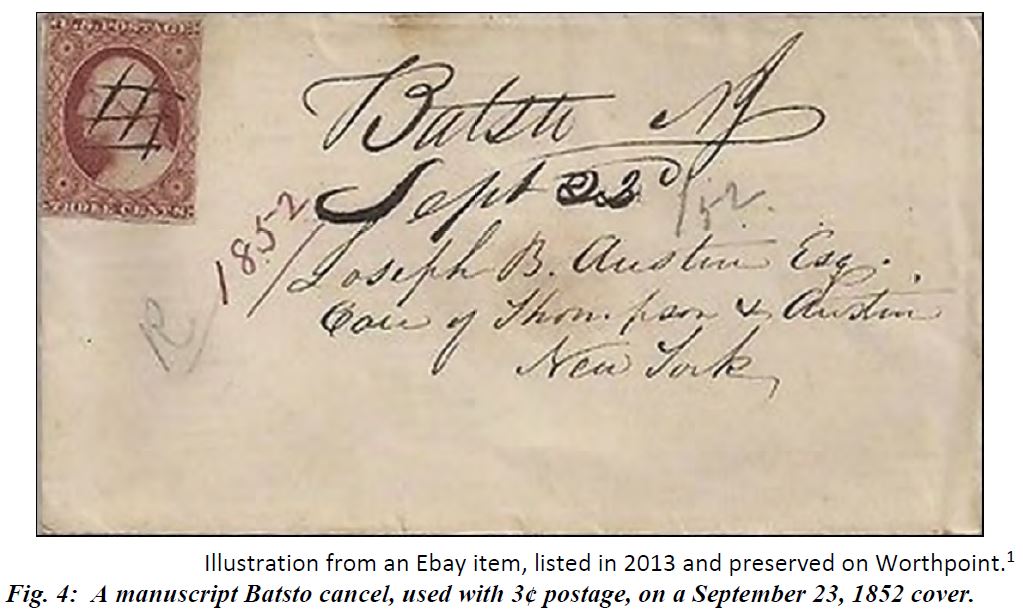 U.S. POSTAGE
THREE CENTS
Batsto NJ
Sept 23d /52.
1852
Joseph B. Austin Esq.
Care of Thompson & Austin
New York
Illustration from an Ebay item, listed in 2013 and preserved on Worthpoint.1
Fig. 4: A manuscript Batsto cancel, used with 3¢ postage, on a September 23, 1852 cover.